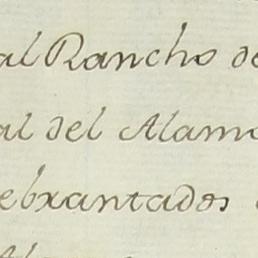 al Rancho de
al del Alamo
ebrantados